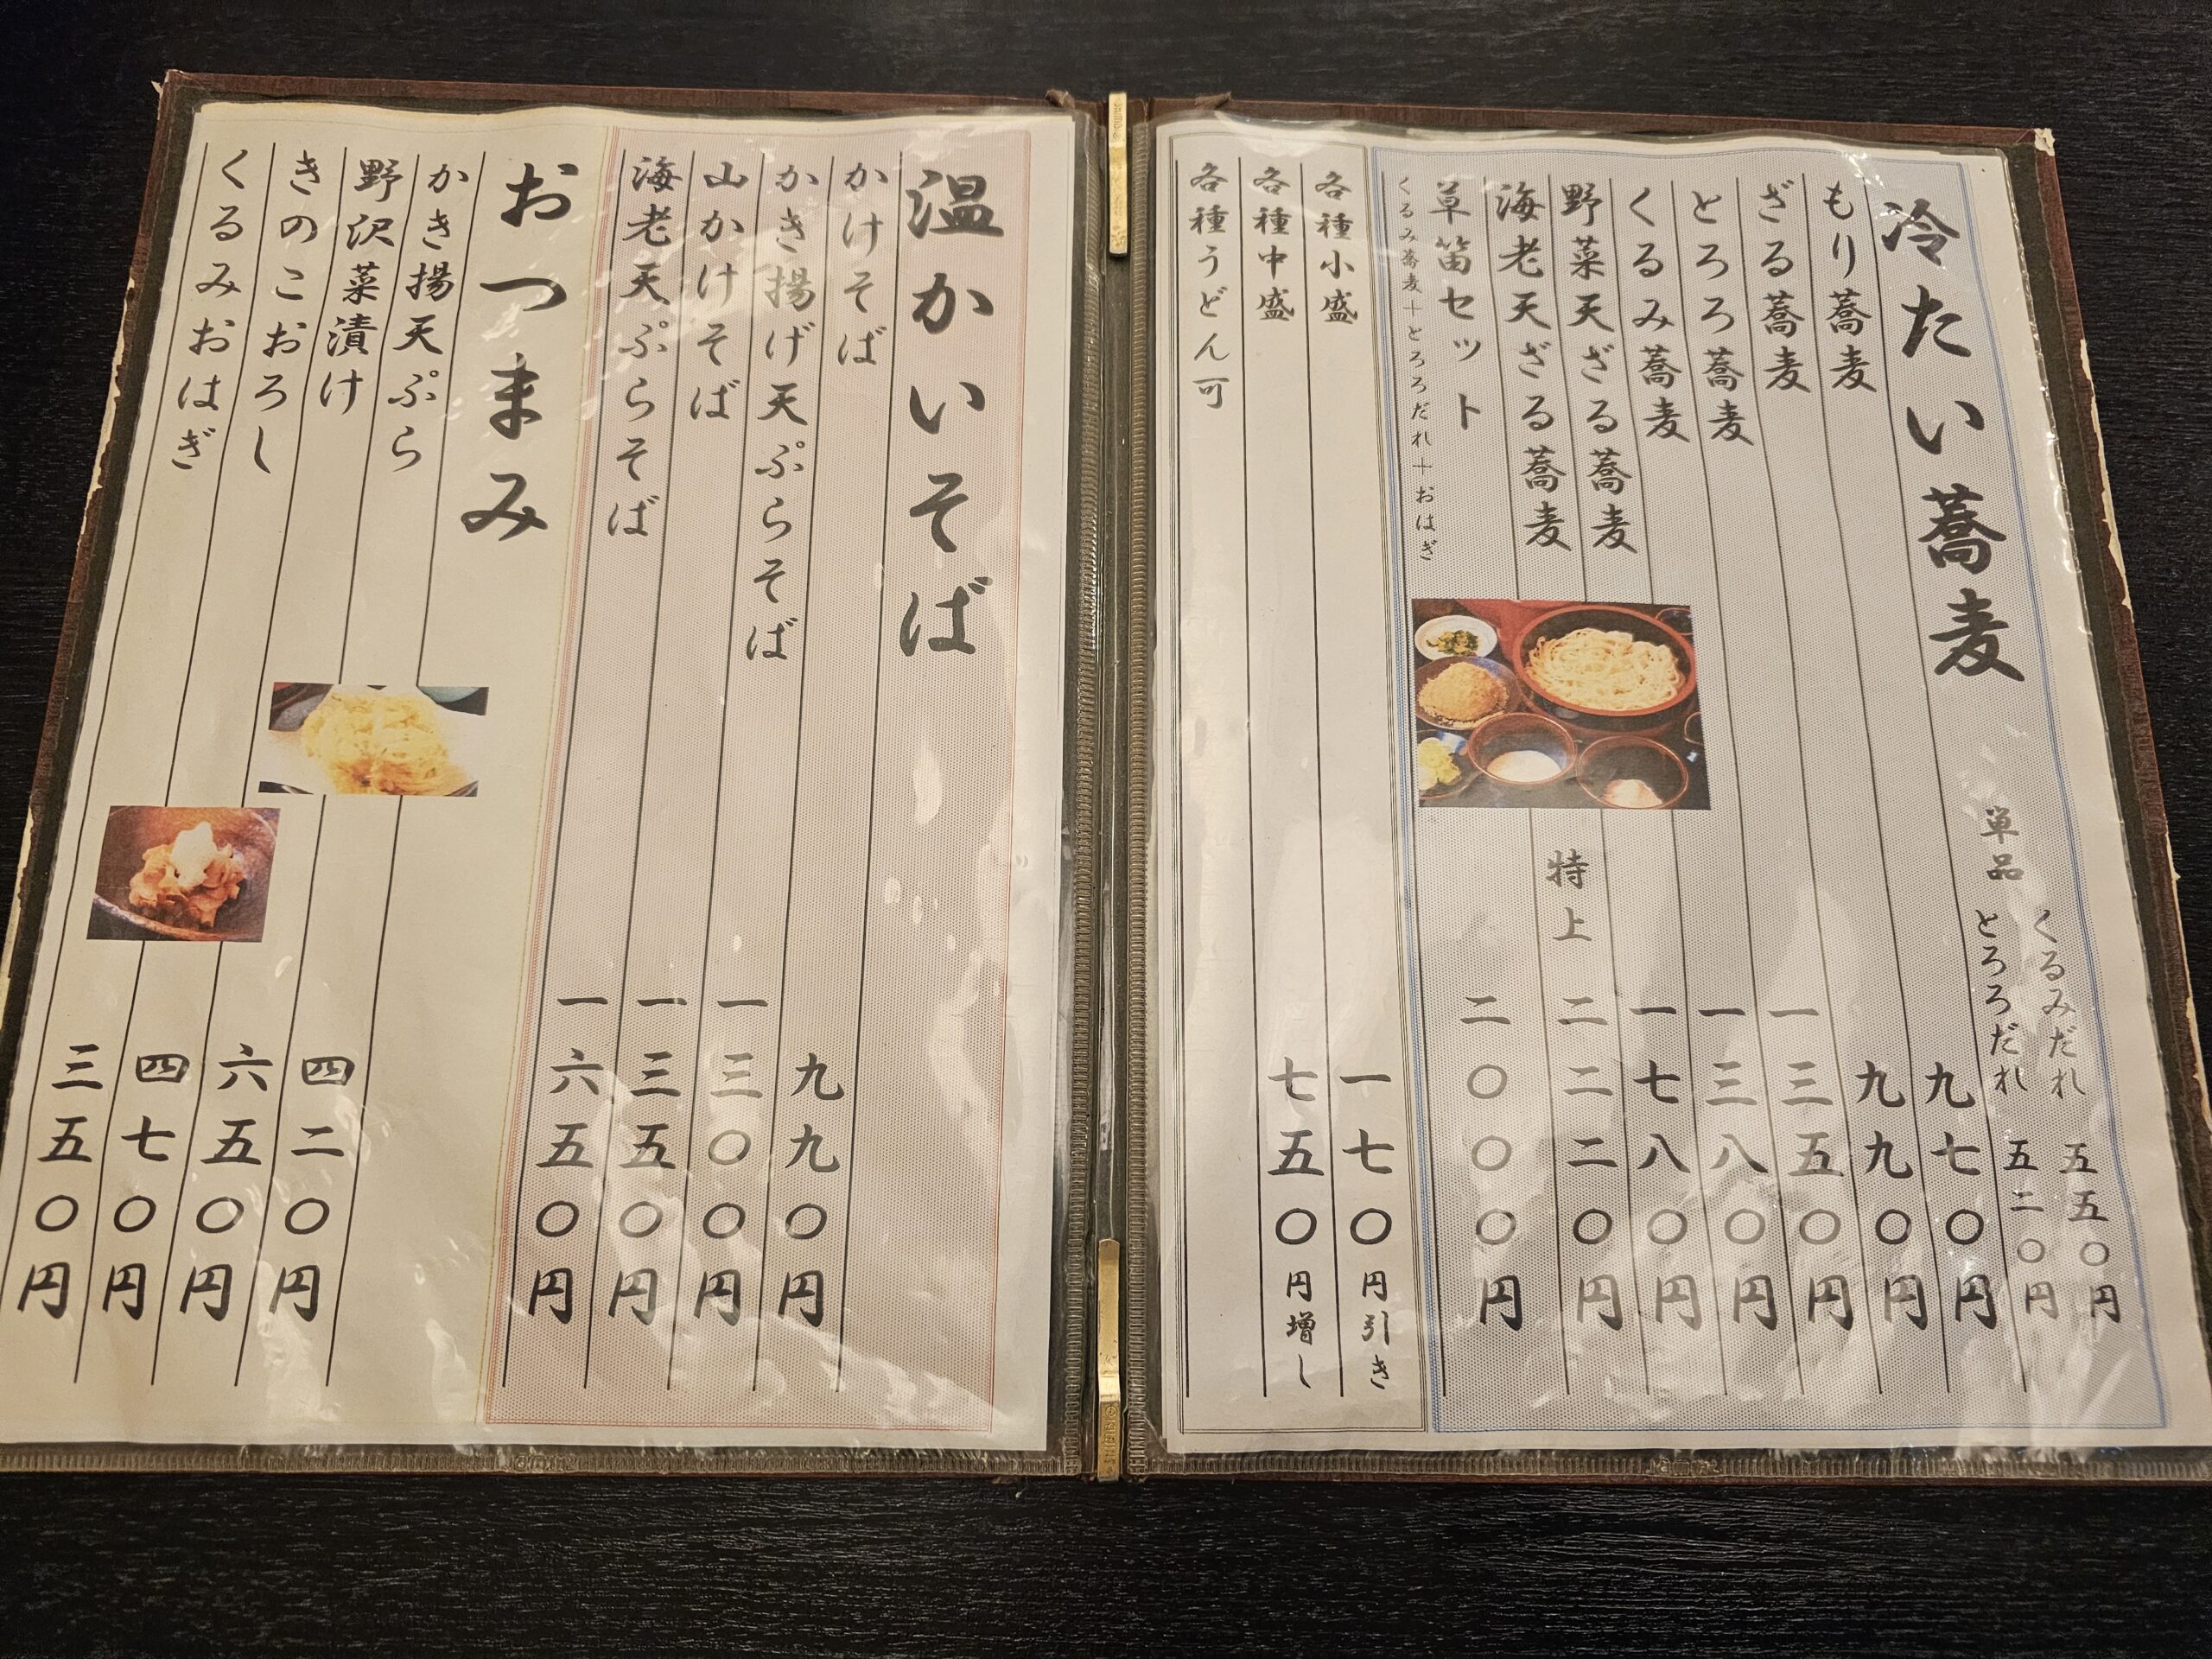 冷たい蕎麦
単品 くるみだれ 五五〇円
とろろだれ 五二〇円
もり蕎麦 九七〇円
ざる蕎麦 九九〇円
とろろ蕎麦 一三五〇円
くるみ蕎麦 一三八〇円
野菜天ざる蕎麦 一七八〇円
海老天ざる蕎麦 特上 二二二〇円
草笛セット 二〇〇〇円
くるみ蕎麦+とろろだれ+おはぎ
各種小盛 一七〇円引き
各種中盛 七五〇円増し
各種うどん可
温かいそば
かけそば 九九〇円
かき揚げ天ぷらそば 一三〇〇円
山かけそば 一三五〇円
海老天ぷらそば 一六五〇円
おつまみ
かき揚天ぷら 四二〇円
野沢菜漬け 六五〇円
きのこおろし 四七〇円
くるみおはぎ 三五〇円